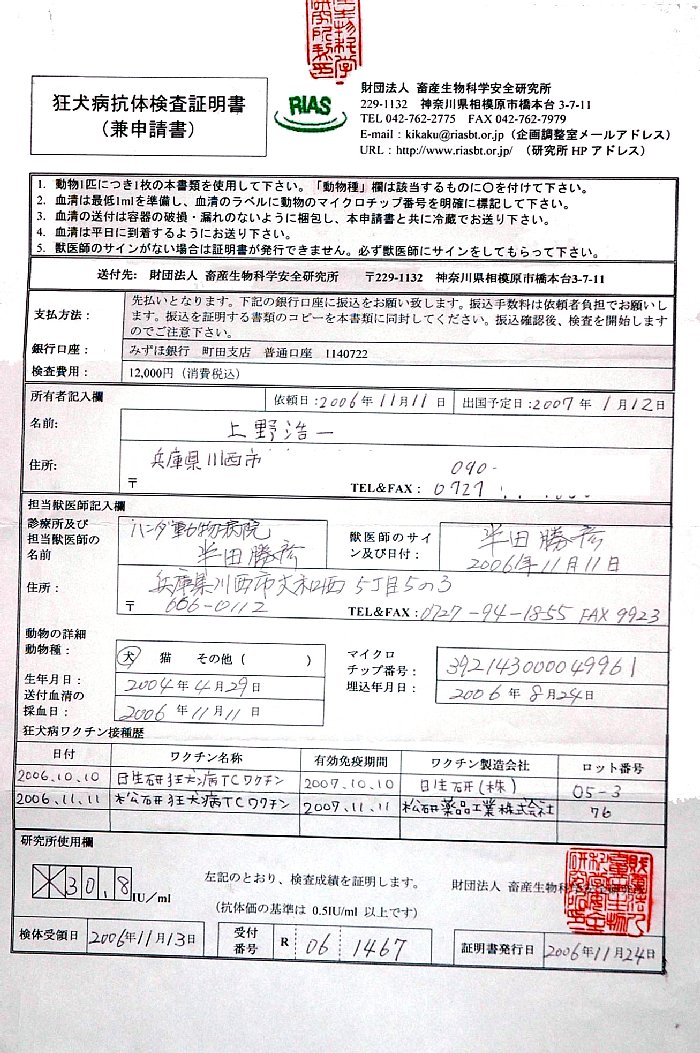 狂犬病抗体検査証明書
(兼申請書)
RIAS
財団法人 畜産生物科学安全研究所
229-1132 神奈川県相模原市橋本台 3-7-11
TEL 042-762-2775 FAX 042-762-7979
E-mail : kikaku@riasbt.or.jp (企画調整室メールアドレス)
URL : http://www.riasbt.or.jp/ (研究所 HP アドレス)
1. 動物1匹につき1枚の本書類を使用して下さい。「動物種」欄は該当するものに○を付けて下さい。
2. 血清は最低1mlを準備し、血清のラベルに動物のマイクロチップ番号を明確に標記して下さい。
3. 血清の送付は容器の破損・漏れのないように梱包し、本申請書と共に冷蔵でお送り下さい。
4. 血清は平日に到着するようにお送り下さい。
5. 獣医師のサインがない場合は証明書が発行できません。必ず獣医師にサインをしてもらって下さい。
送付先: 財団法人 畜産生物科学安全研究所 〒229-1132 神奈川県相模原市橋本台3-7-11
支払方法: 先払いとなります。下記の銀行口座に振込をお願い致します。振込手数料は依頼者負担でお願いし
ます。振込を証明する書類のコピーを本書類に同封してください。振込確認後、検査を開始します
のでご注意下さい。
銀行口座: みずほ銀行 町田支店 普通口座 1140722
検査費用: 12,000円 (消費税込)
所有者記入欄 依頼日:2006年11月11日 出国予定日:2007年1月12日
名前: 上野浩一
住所: 兵庫県川西市
090-
〒 TEL&FAX: 0727
担当獣医師記入欄
診療所及び
担当獣医師の
名前
ハンダ動物病院
半田勝彦
獣医師のサイ
ン及び日付:
半田勝彦
2006年11月11日
住所: 兵庫県川西市大和西5丁目5の3
〒 666-0112 TEL&FAX:0727-94-1855 FAX 9923
動物の詳細
動物種: 犬 猫 その他( )
マイクロ
チップ番号: 392143000049961
生年月日: 2004年4月29日
埋込年月日: 2006年8月24日
送付血清の
採血日: 2006年11月11日
狂犬病ワクチン接種歴
日付 ワクチン名称 有効免疫期間 ワクチン製造会社 ロット番号
2006.10.10 日生研狂犬病TCワクチン 2007.10.10 日生研(株) 05-3
2006.11.11 松研狂犬病TCワクチン 2007.11.11 松研薬品工業株式会社 76
研究所使用欄
30.8 IU/ml
左記のとおり、検査成績を証明します。 財団法人 畜産生物科学安全研究所
(抗体価の基準は 0.5IU/ml 以上です)
検体受領日 2006年11月13日 受付
番号 R 06 1467 証明書発行日 2006年11月24日